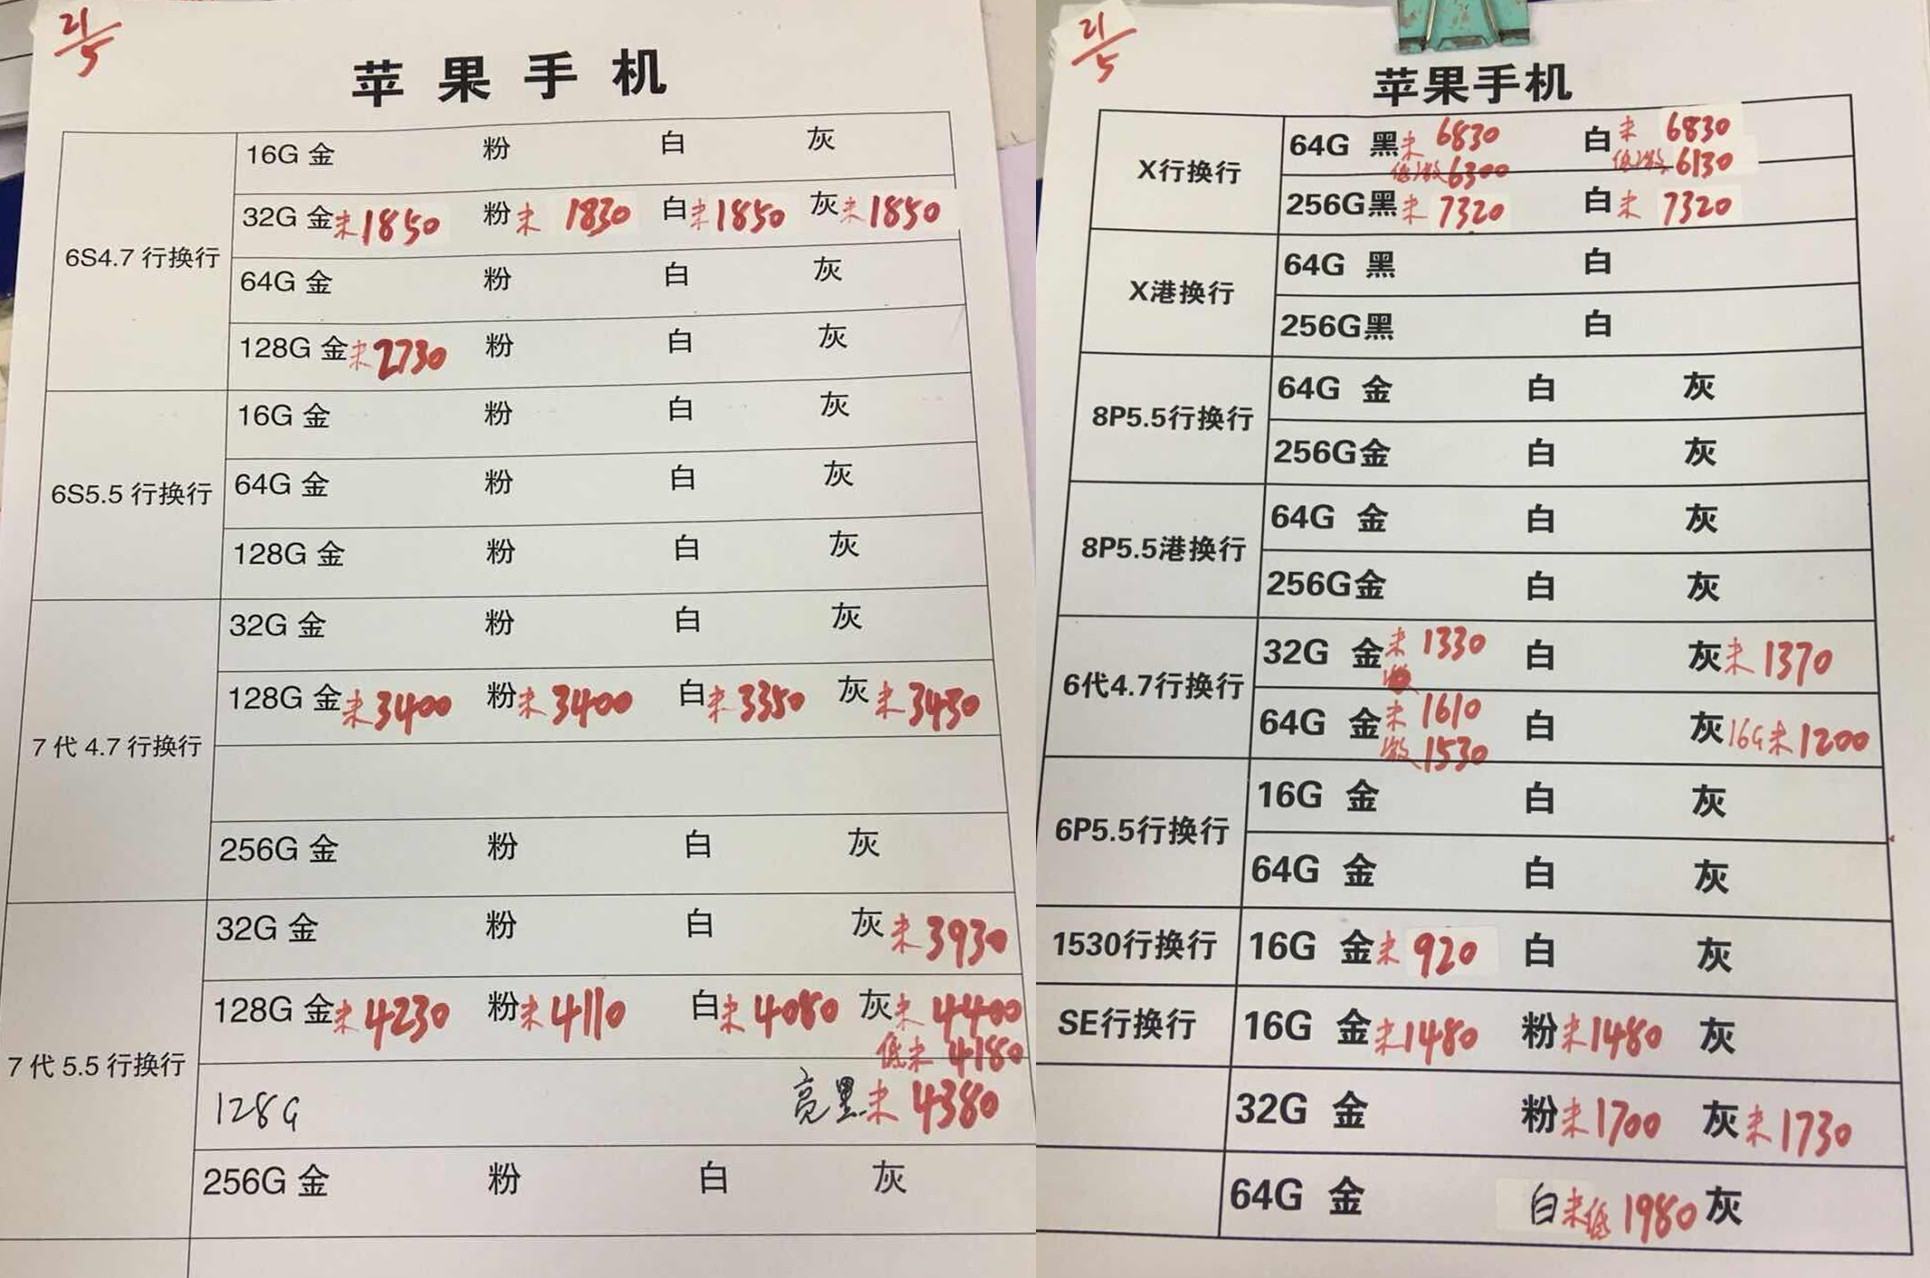 21/5
苹果手机
6S4.7行换行
16G 金 粉 白 灰
32G 金未1850 粉未1830 白未1850 灰未1850
64G 金 粉 白 灰
128G 金未2730 粉 白 灰
6S5.5行换行
16G 金 粉 白 灰
64G 金 粉 白 灰
128G 金 粉 白 灰
7代4.7行换行
32G 金 粉 白 灰
128G 金未3400 粉未3400 白未3350 灰未3430
256G 金 粉 白 灰
7代5.5行换行
32G 金 粉 白 灰未3930
128G 金未4230 粉未4110 白未4080 灰未4400
低未4180
128G 亮黑未4380
256G 金 粉 白 灰
21/5
苹果手机
X行换行
64G 黑未6830 白未6830
低激6300 低激6130
256G黑未7320 白未7320
X港换行
64G 黑 白
256G黑 白
8P5.5行换行
64G 金 白 灰
256G金 白 灰
8P5.5港换行
64G 金 白 灰
256G金 白 灰
6代4.7行换行
32G 金未1330 白 灰未1370
64G 金未1610 白 灰16G未1200
激1530
6P5.5行换行
16G 金 白 灰
64G 金 白 灰
1530行换行
16G 金未920 白 灰
SE行换行
16G 金未1480 粉未1480 灰
32G 金 粉未1700 灰未1730
64G 金 白未低1980 灰